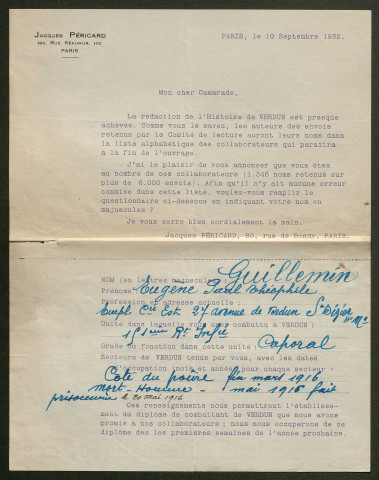 JACQUES PÉRICARD
100, RUE RÉAUMUR, 100
PARIS
PARIS, le 10 Septembre 1932.
Mon cher Camarade,
La rédaction de l'Histoire de VERDUN est presque
achevée. Comme vous le savez, les auteurs des envois
retenus par le Comité de lecture auront leurs noms dans
la liste alphabétique des collaborateurs qui paraîtra
à la fin de l'ouvrage.
J'ai le plaisir de vous annoncer que vous êtes
au nombre de ces collaborateurs (1.346 noms retenus sur
plus de 6.000 envois). Afin qu'il n'y ait aucune erreur
commise dans cette liste, voulez-vous remplir le
questionnaire ci-dessous en indiquant votre nom en
majuscules ?
Je vous serre bien cordialement la main.
Jacques PÉRICARD, 80, rue de Bondy, PARIS.
NOM (en lettres majuscules) Guillemin
Prénoms : Eugène Paul Théophile
Profession et adresse actuelle :
Empl. Cie Est 27 avenue de Verdun St Dizier Hte Me
Unité dans laquelle vous avez combattu à VERDUN :
Rt Infie
Grade ou fonction dans cette unité : Caporal
Secteurs de VERDUN tenus par vous, avec les dates
d'occupation (mois et année) pour chaque secteur :
Cote du poivre fin mars 1916
Mort-Homme - mai 1916 fait
prisonnier le 20 mai 1916
Ces renseignements nous permettront l'établisse-
ment du diplôme de combattant de VERDUN que nous avons
promis à nos collaborateurs ; nous nous occuperons de ce
diplôme dès les premières semaines de l'année prochaine.